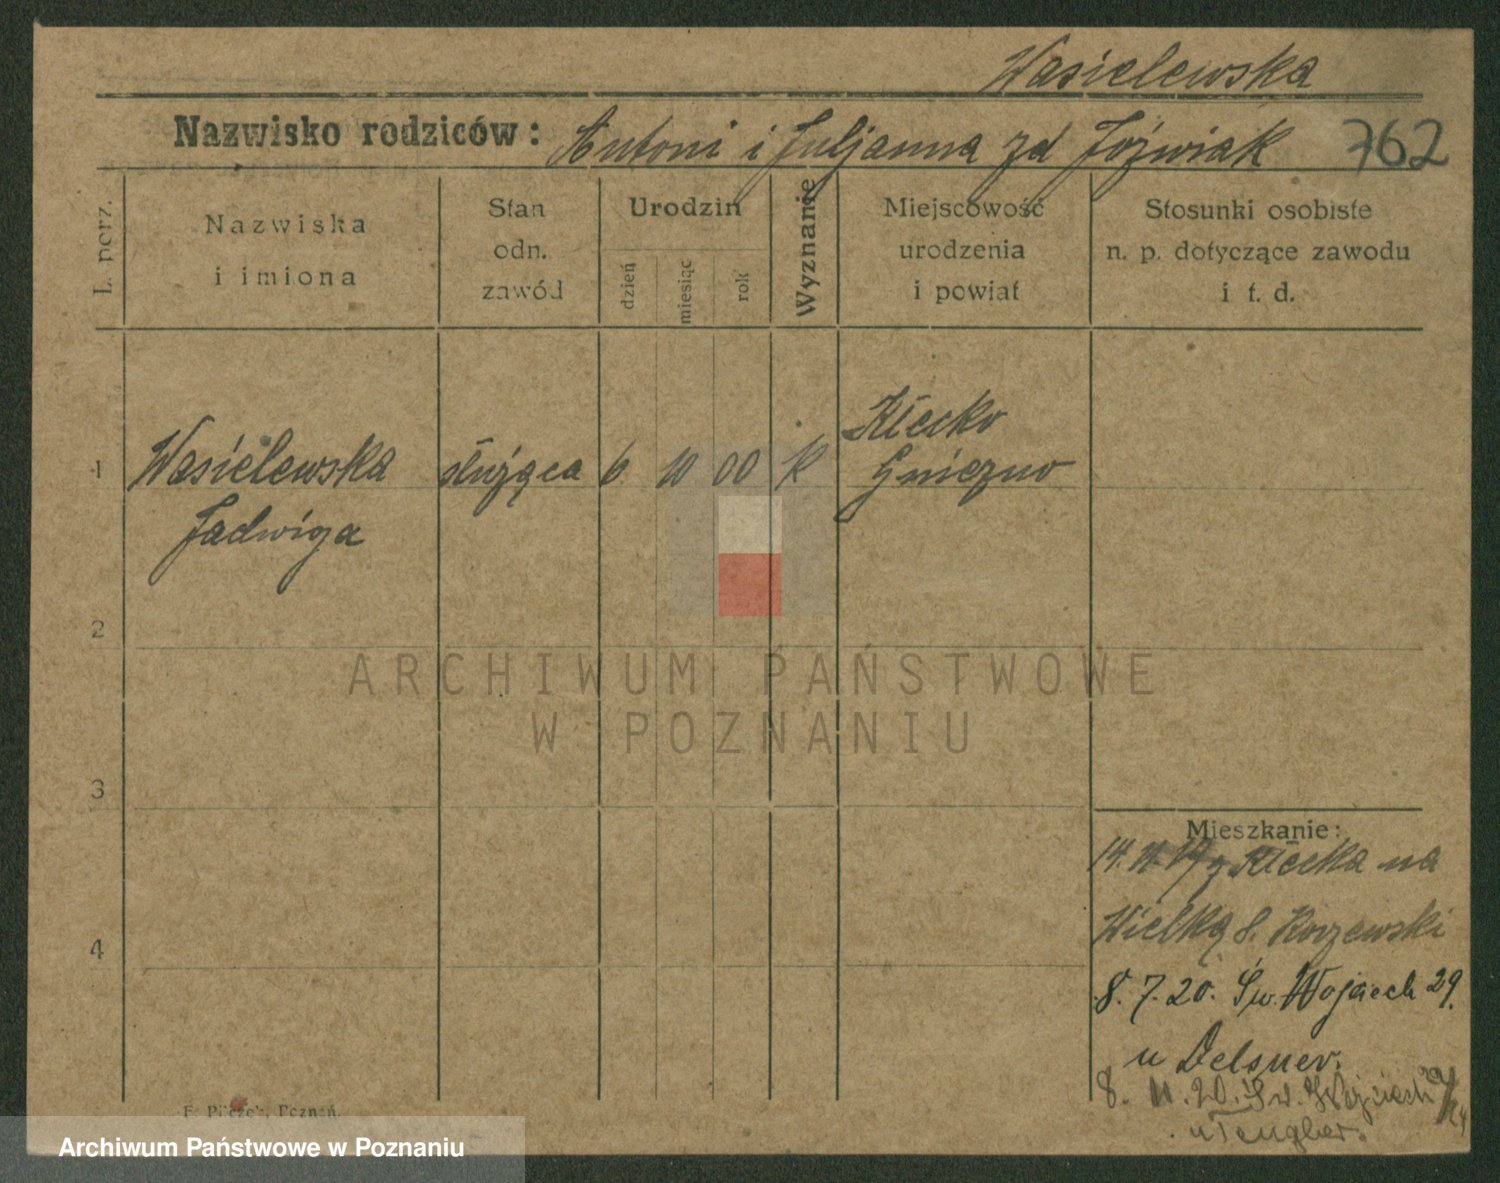 Wasielewska
Nazwisko rodziców: Antoni i Juljanna zd Jóźwiak 762
L. porz.
Nazwiska
i imiona
Stan
odn.
zawód
Urodzin
dzień
miesiąc
rok
Wyznanie
Miejscowość
urodzenia
i powiat
Stosunki osobiste
n. p. dotyczące zawodu
i t. d.
1 Wasielewska służąca 6 10 00 K Kłecko
Jadwiga Gniezno
2
3
4
Mieszkanie:
14. 11. z Kłecka na
Wielką 8. Korzewski
8. 7. 20. Św. Wojciech 29.
u Delsner.
8. 11. 20. Św. Wojciech
u
Archiwum Państwowe w Poznaniu
ARCHIWUM PAŃSTWOWE
W POZNANIU